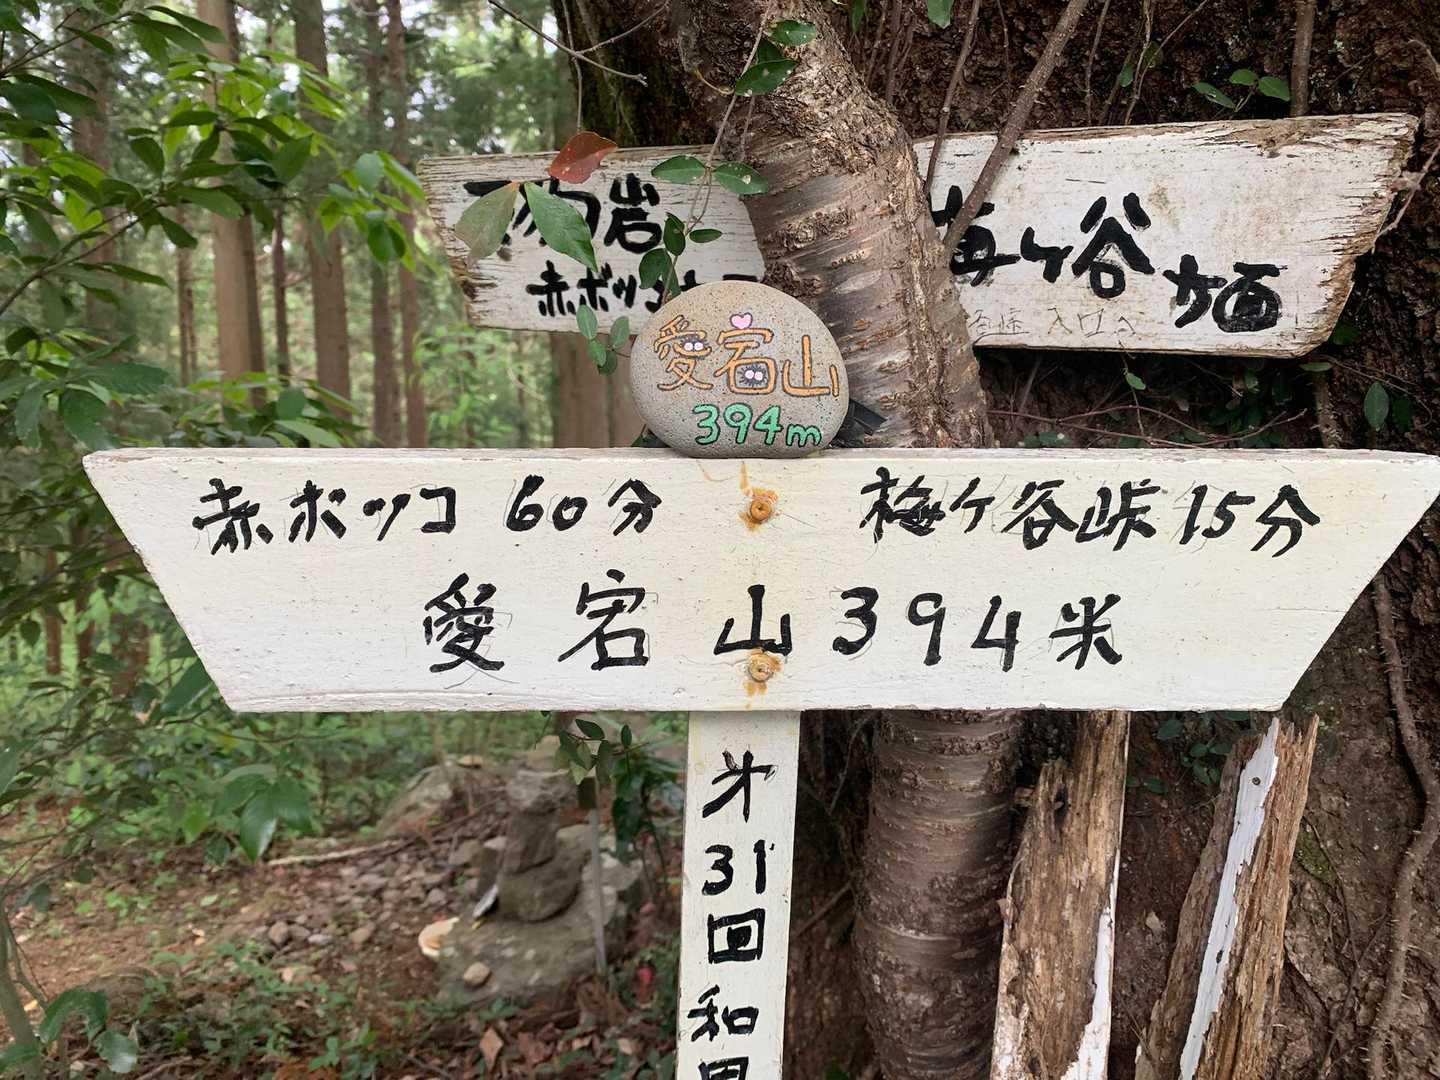 岩
赤ボッコ
梅ヶ谷
入口へ
愛宕山
394m
赤ボッコ 60分 梅ケ谷峠 15分
愛宕山 394米
才31回和田